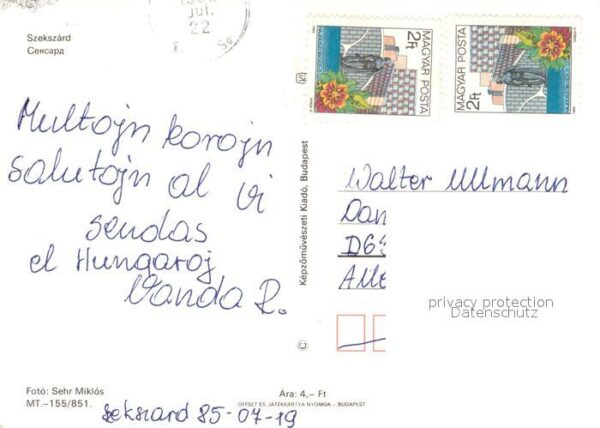 Szekszárd
Сексард
JUL.
22
MAGYAR POSTA
2Ft
MAGYAR POSTA
2Ft
Multojn korajn
salutojn al vi
sendas
el Hungaroj
Vanda R.
Képzőművészeti Kiadó, Budapest
©
Walter Ullmann
Dan
D69
Alle
privacy protection
Datenschutz
Fotó: Sehr Miklós
MT.–155/851.
Ára: 4,– Ft
OFFSET ÉS JÁTÉKKÁRTYA NYOMDA – BUDAPEST
Sekszard 85-07-19